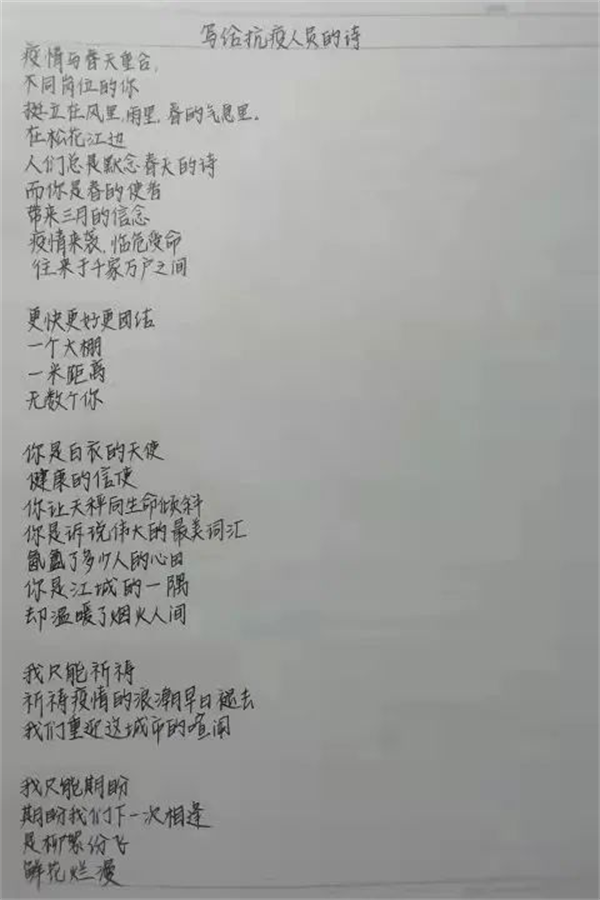 写给抗疫人员的诗
疫情与春天重合,
不同岗位的你
挺立在风里,雨里,春的气息里。
在松花江边
人们总是默念春天的诗
而你是春的使者
带来三月的信念
疫情来袭,临危受命
往来于千家万户之间
更快更好更团结
一个大棚
一米距离
无数个你
你是白衣的天使
健康的信使
你让天秤向生命倾斜
你是诉说伟大的最美词汇
氤氲了多少人的心田
你是江城的一隅
却温暖了烟火人间
我只能祈祷
祈祷疫情的浪潮早日褪去
我们重迎这城市的喧闹
我只能期盼
期盼我们下一次相逢
是柳絮份飞
鲜花烂漫